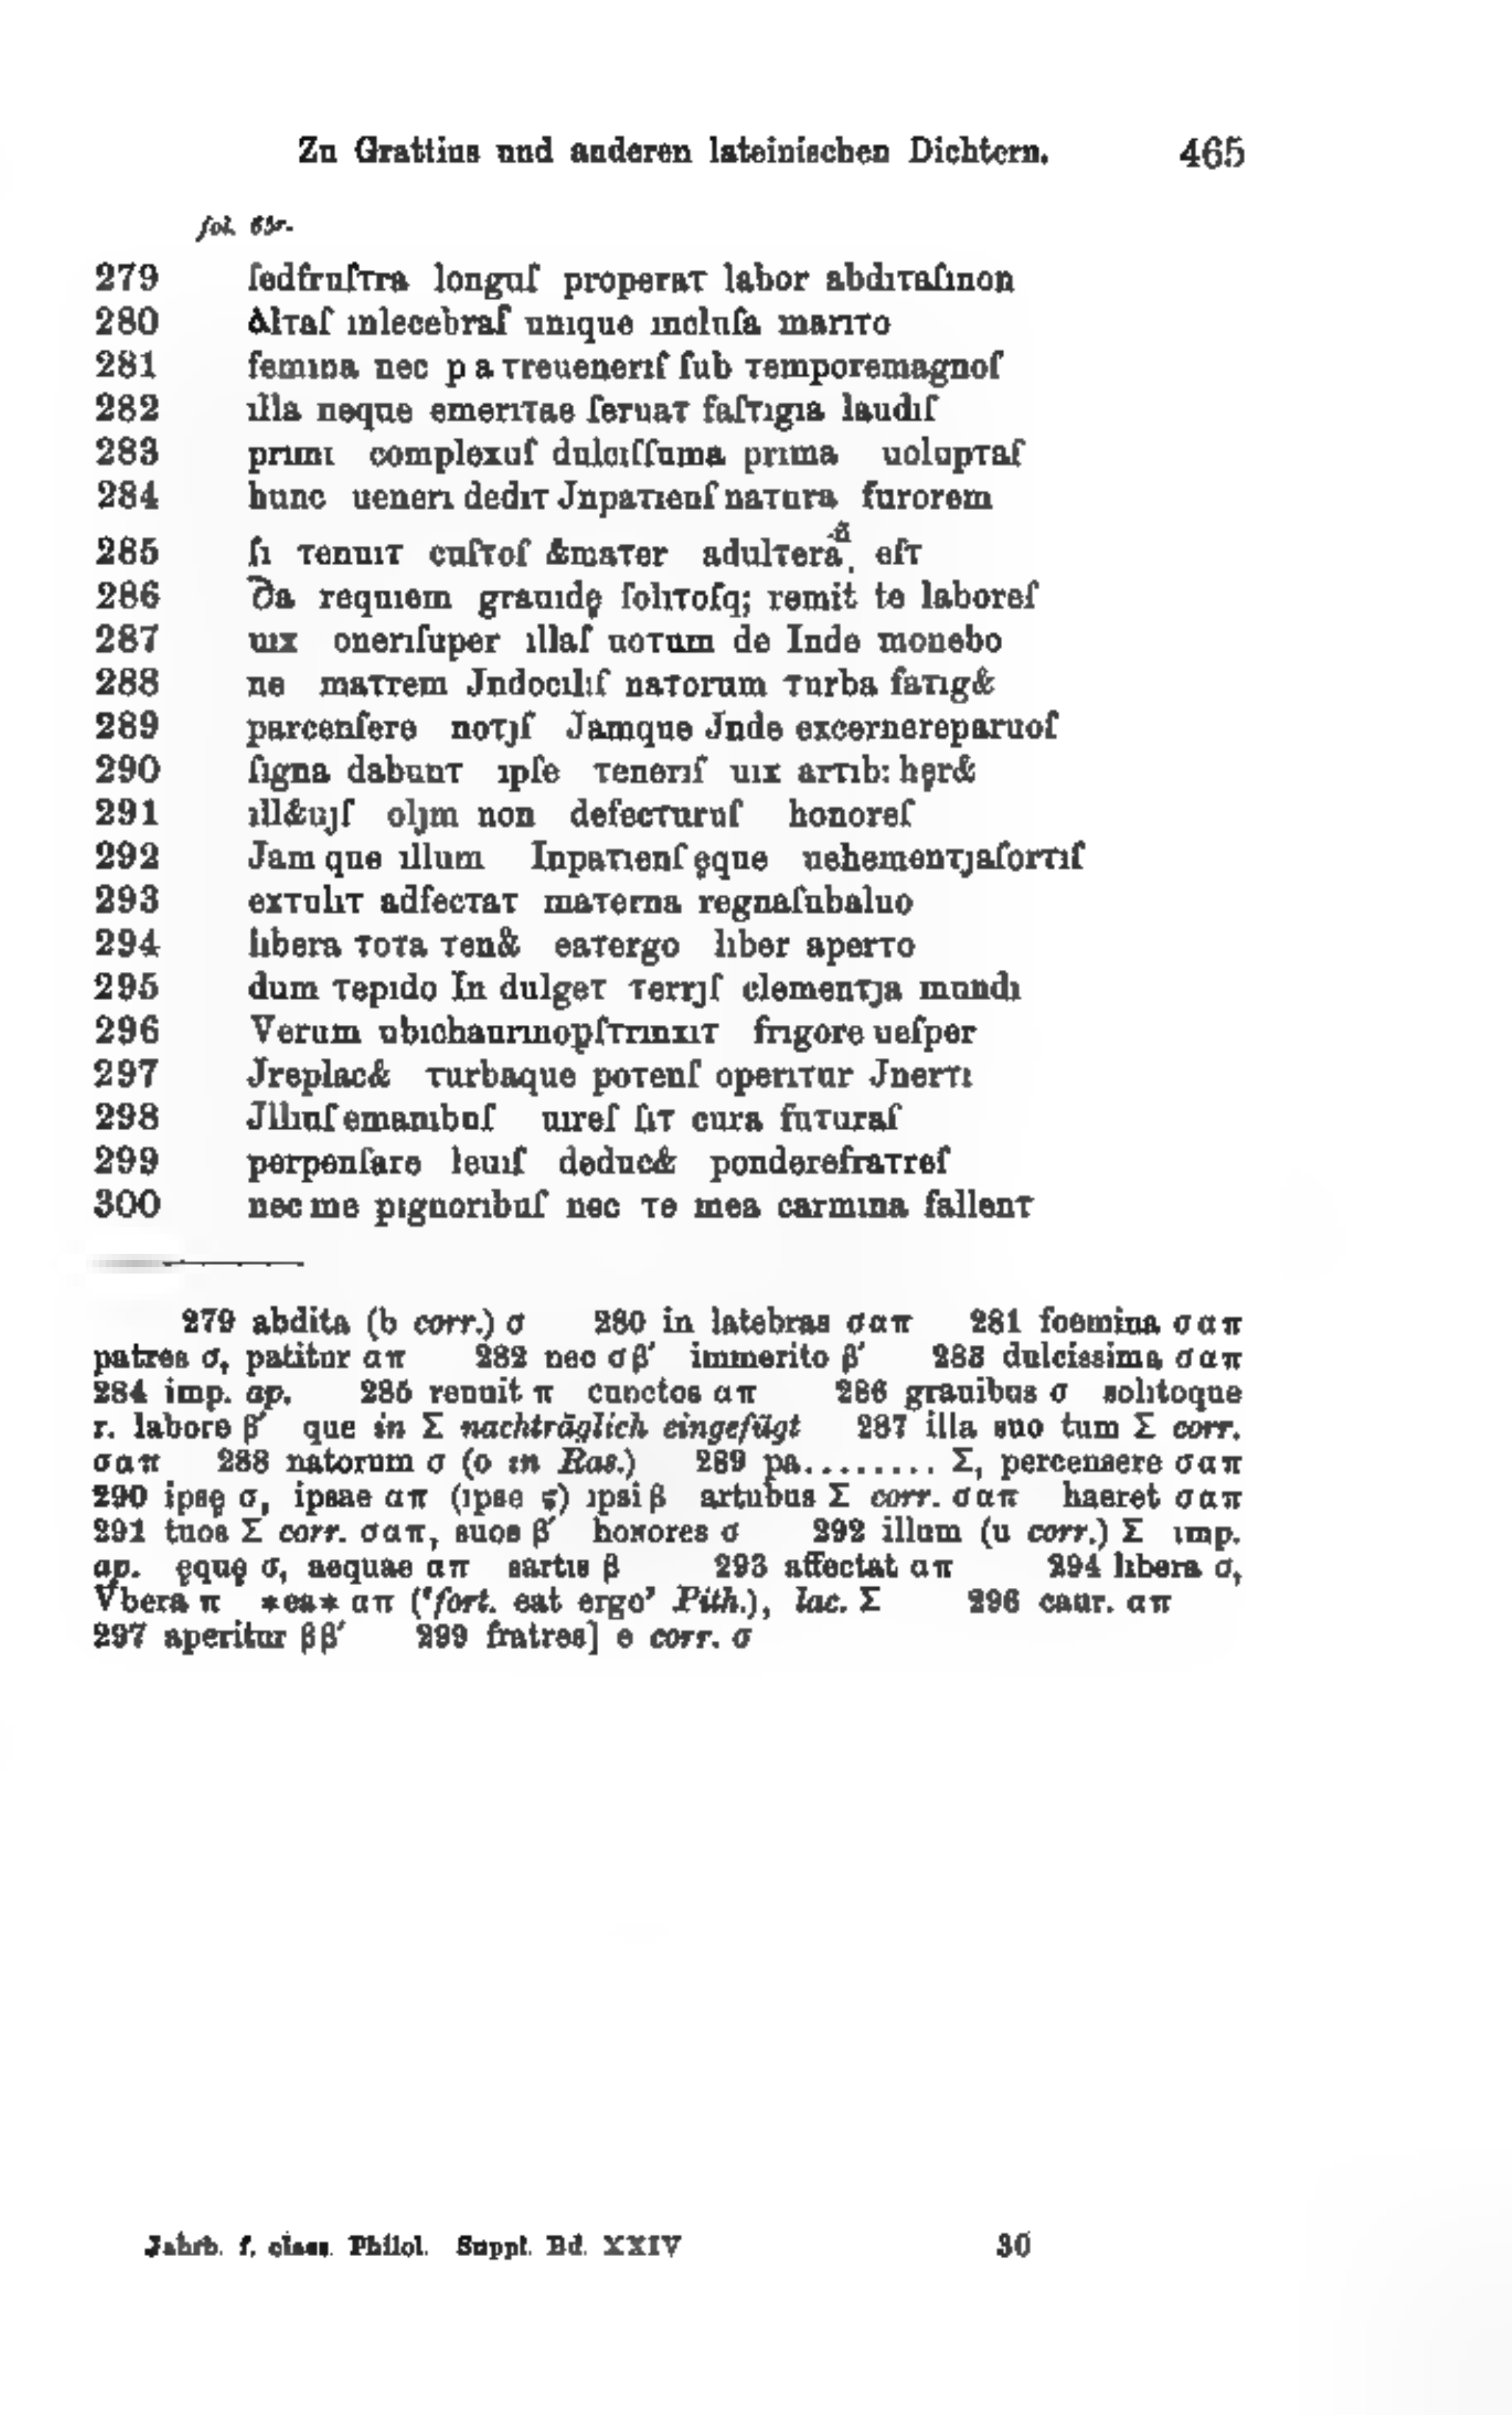 Zu Grattius und anderen lateinischen Dichtern. 465
fol. 65r.
279 ſedfruſtra longuſ properat labor abdıtaſınon
280 Altaſ ınlecebraſ unıque ıncluſa marıto
281 femına nec p a treuenerıſ ſub temporemagnoſ
282 ılla neque emerıtae ſeruat faſtıgıa laudıſ
283 prımı complexuſ dulcıſſuma prıma uoluptaſ
284 hunc uenerı dedıt Jnpatıenſ natura furorem
285 ſı tenuıt cuſtoſ &mater adultera eſt
286 Da requıem grauıdę ſolıtoſq; remit te laboreſ
287 uıx onerıſuper ıllaſ uotum de Inde monebo
288 ne matrem Jndocılıſ natorum turba fatıg&
289 parcenſere notjſ Jamque Jnde excernereparuoſ
290 ſıgna dabunt ıpſe tenerıſ uıx artıb: hęr&
291 ıll&ujſ oljm non defecturuſ honoreſ
292 Jam que ıllum Inpatıenſ ęque uehementjaſortıſ
293 extulıt adfectat materna regnaſubaluo
294 lıbera tota ten& eatergo lıber aperto
295 dum tepıdo In dulget terrjſ clementja mundı
296 Verum ubıchaurınopſtrınxıt frıgore ueſper
297 Jreplac& turbaque potenſ operıtur Jnertı
298 Jllıuſ emanıbuſ uıreſ ſıt cura futuraſ
299 perpenſare leuıſ deduc& ponderefratreſ
300 nec me pıgnorıbuſ nec te mea carmına fallent
279 abdita (b corr.) σ 280 in latebras σαπ 281 foemina σαπ
patres σ, patitur απ 282 nec σβ′ immerito β′ 283 dulcissima σαπ
284 imp. ap. 285 renuit π cunctos απ 286 grauibus σ solitoque
r. labore β′ que in Σ nachträglich eingefügt 287 illa suo tum Σ corr.
σαπ 288 natorum σ (o in Ras.) 289 pa......... Σ, percensere σαπ
290 ipsę σ, ipsae απ (ıpse ς) ıpsi β artubus Σ corr. σαπ haeret σαπ
291 tuos Σ corr. σαπ, suos β′ honores σ 292 illum (u corr.) Σ imp.
ap. ęquę σ, aequae απ sartis β 293 affectat απ 294 libera σ,
Vbera π *ea* απ (‘fort. eat ergo’ Pith.), lac. Σ 296 caur. απ
297 aperitur ββ′ 299 fratres] e corr. σ
Jahrb. f. class. Philol. Suppl. Bd. XXIV 30